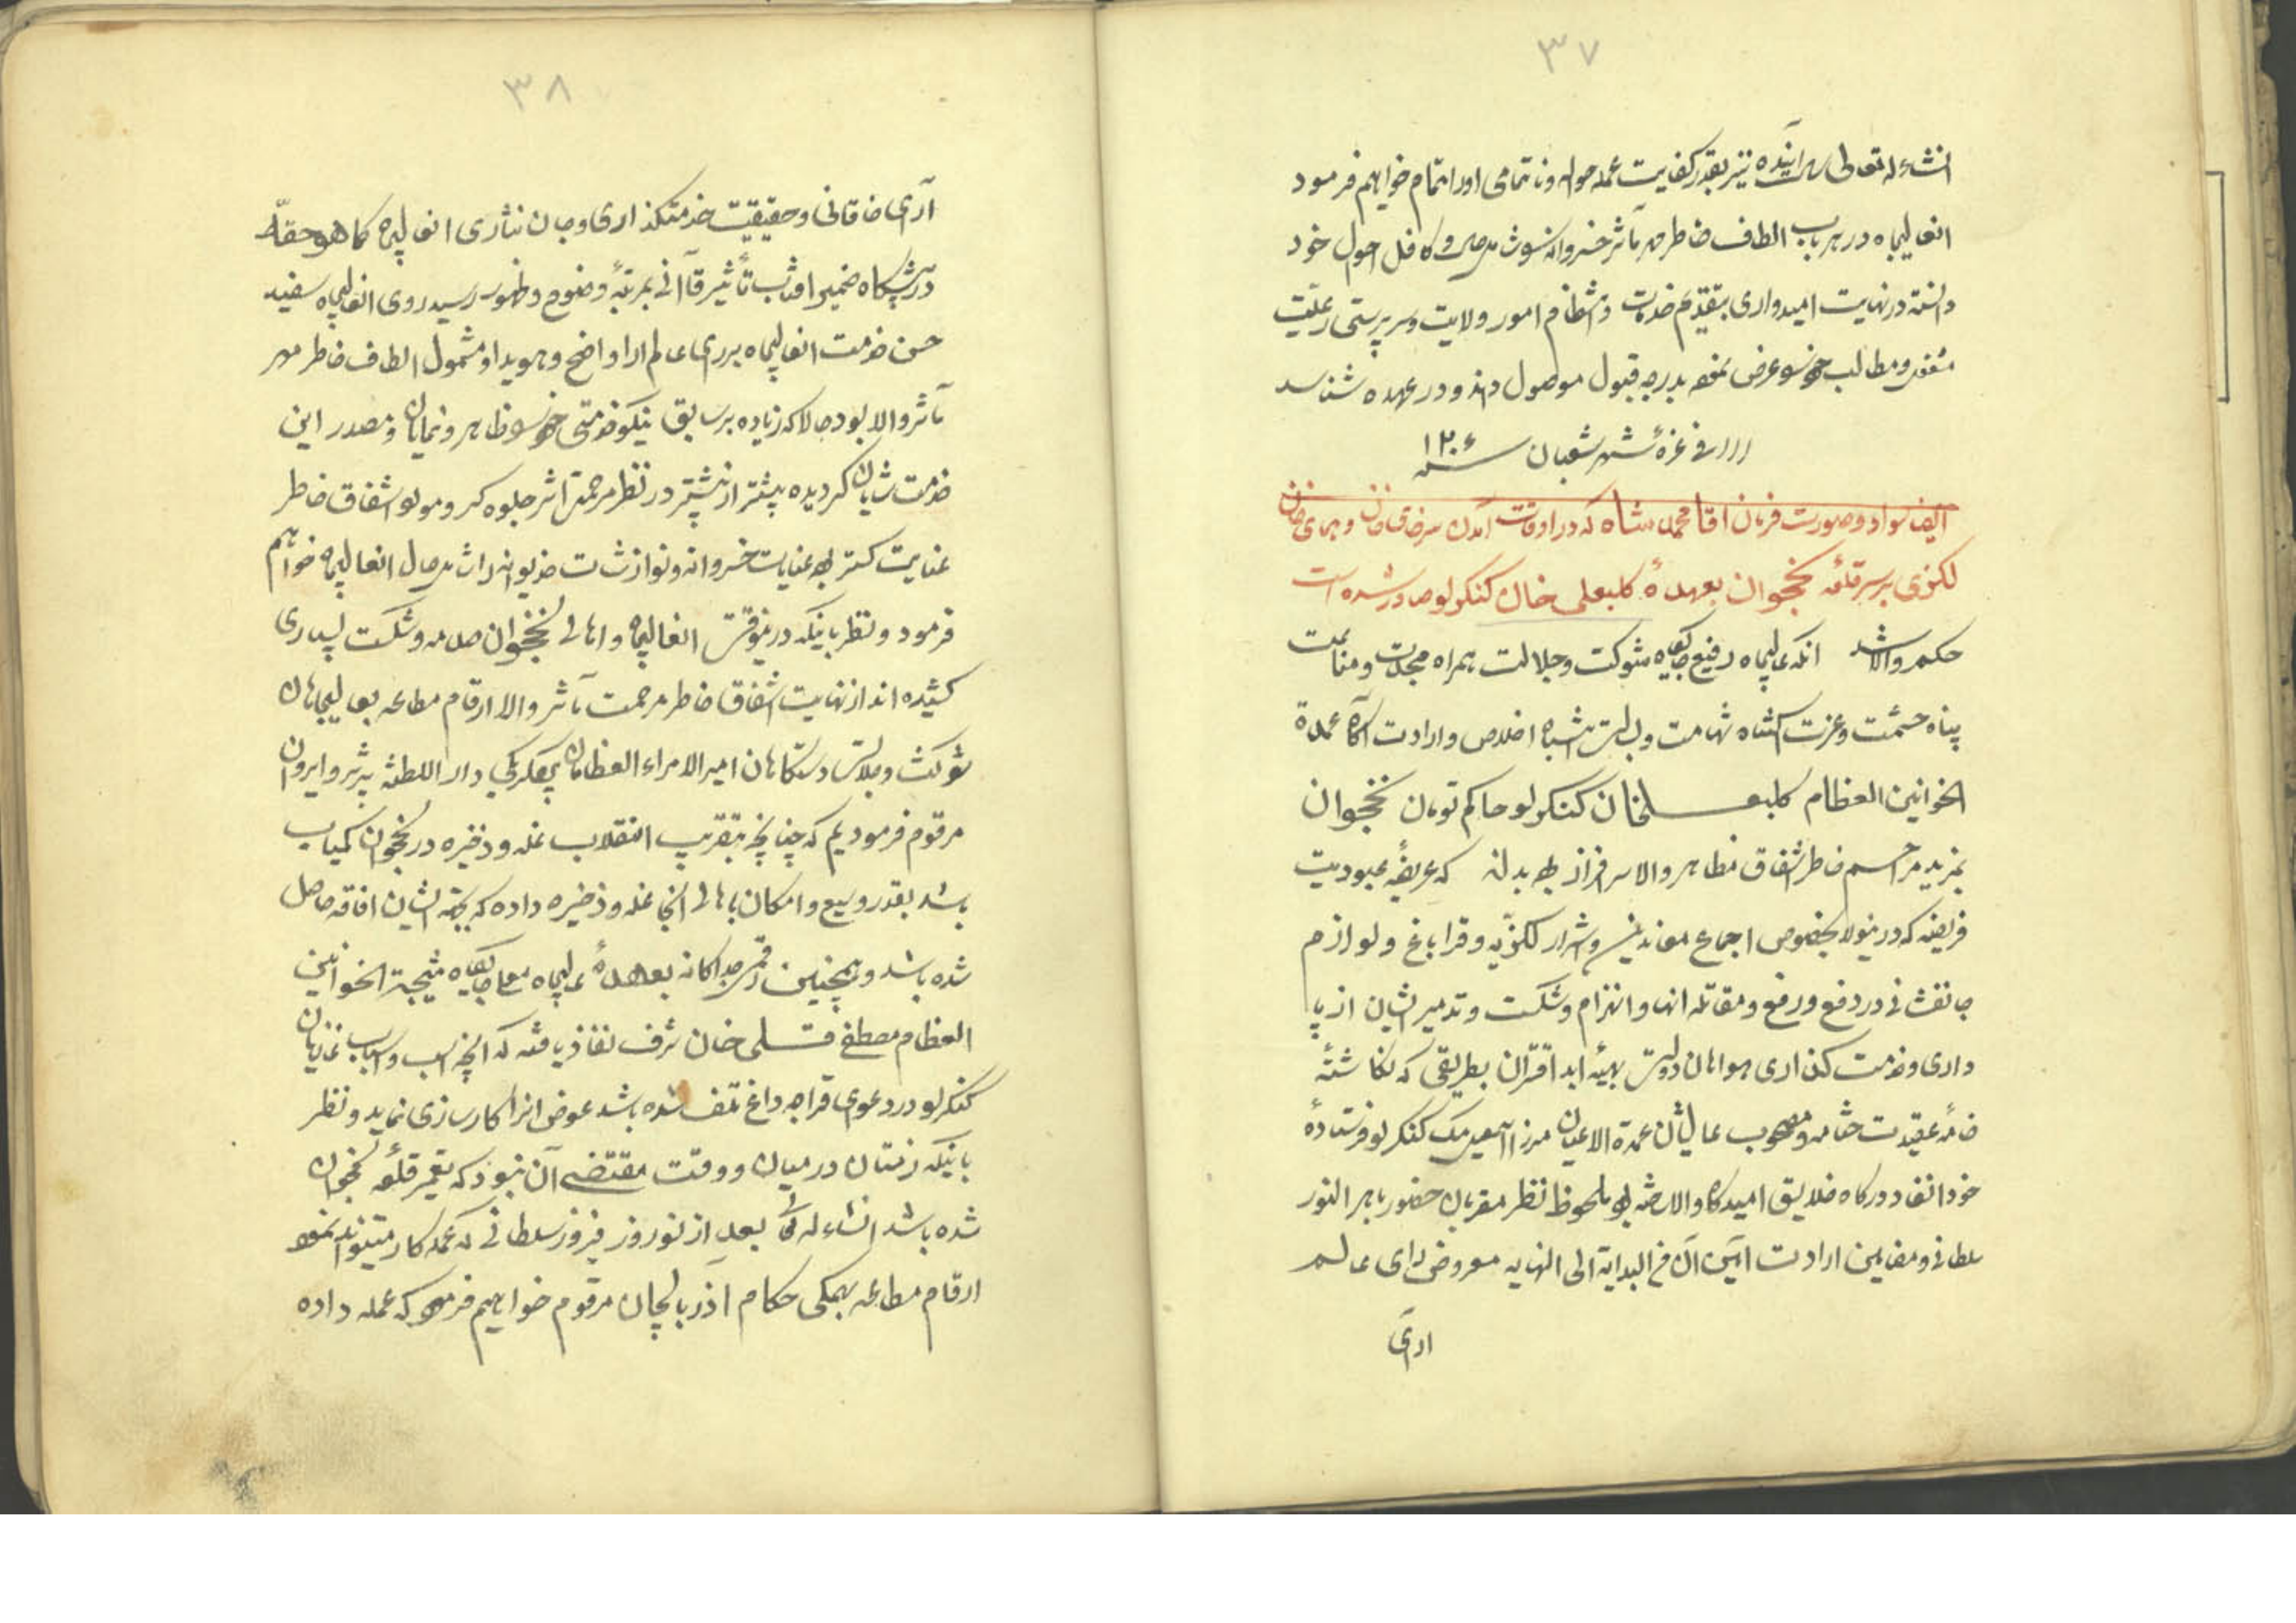 ۳۷
انشاءله تعالی سال آینده نیز بقدر کفایت عمله حواله و ناتمامی او را تمام خواهیم فرمود
انعالیجاه در هر باب الطاف خاطر مهر مآثر خسروانه را کافل احوال خود
دانسته در نهایت امیدواری بتقدیم خدمات و انتظام امور ولایت و سرپرستی رعیت
و مطالب خود عرض نموده بدرجه قبول موصول داند و در عهده شناسد
فی غره شهر شعبان سنه ۱۲۰۶
ایضا سواد و صورت فرمان اقا محمد شاه که در اوقات آمدن سرخای خان و همای خان
لکزی بر سر قلعه نخجوان بعهدهٔ کلبعلی خان کنکرلو صادر شده است
حکم والا شد آنکه عالیجاه رفیع جایگاه شوکت و جلالت همراه مجدت و مناعت
پناه حشمت و عزت اکتناه شهامت و بسالت انتباه اخلاص و ارادت آگاه عمدة
الخوانین العظام کلبعلیخان کنکرلو حاکم تومان نخجوان
بمزید مراحم خاطر اشفاق مظاهر والا سرافراز بوده بداند که عریضهٔ عبودیت
فریضه که درینولا بخصوص اجماع معاندین و اشرار لکزیه و قراباغ و لوازم
جانفشانی در دفع و رفع و مقاتله انها و انهزام و شکست و تدمیر ایشان از پا
داری و خدمت کذاری هواهان دولت بهیهٔ ابد اقتران بطریقی که نکاشتهٔ
خامهٔ عقیدت ختامه و مصحوب عالیشان عمدة الاعیان میرزا اسمعیل بیک کنکرلو فرستادهٔ
خود انفاد درگاه خلایق امیدگاه والا داشته بود ملحوظ نظر مقربان حضور باهر النور
سلطانی و مضامین ارادت آیین آن من البدایة الی النهایه معروض رای عالم
ارای
۳۸
آرای خاقانی و حقیقت خدمتکذاری و جان نثاری انعالیجاه کما هو حقه
در پیشکاه ضمیر افتاب تأثیر قاآنی بمرتبهٔ وضوح و ظهور رسید روی انعالیجاه سفید
حسن خدمت انعالیجاه بر رای عالم ارا واضح و هویدا و مشمول الطاف خاطر مهر
مآثر والا بود حالا که زیاده بر سابق نیکو خدمتی خود ظاهر و نمایان و مصدر این
خدمت شایان کردیده بیشتر از پیشتر در نظر مرحمت اثر جلوه کر و مورد اشفاق خاطر
عنایت کستر بوده عنایات خسروانه و نوازشات خدیوانه را شامل حال انعالیجاه خواهیم
فرمود و نظر باینکه درینوقت انعالیجاه و اهالی نخجوان صدمه و شکست بسیاری
کشیده اند از نهایت اشفاق خاطر مرحمت مآثر والا ارقام مطاعه بعالیجاهان
شوکت و جلالت دستکاهان امیر الامراء العظامان بیکلربیکی دار السلطنه تبریز و ایروان
مرقوم فرمودیم که چنانچه بتقریب انقلاب غله و ذخیره در نخجوان کمیاب
باشد بقدر وسع و امکان باهالی انجا غله و ذخیره داده که بجهة ایشان افاقه حاصل
شده باشد و همچنین رقم جداکانه بعهدهٔ عالیجاه معلی جایگاه نتیجة الخوانین
العظام مصطفی قلی خان شرف نفاذ یافته که انچه اسب و اسباب غازیان
کنکرلو در دعوای قراجه داغ تلف شده باشد عوض انرا کارسازی نماید و نظر
باینکه زمستان در میان و وقت مقتضی آن نبود که تعمیر قلعه نخجوان
شده باشد انشاءله تعالی بعد از نوروز فیروز سلطانی که عمله کار میتواند نمود
ارقام مطاعه بهمکی حکام آذربایجان مرقوم خواهیم فرمود که عمله داده